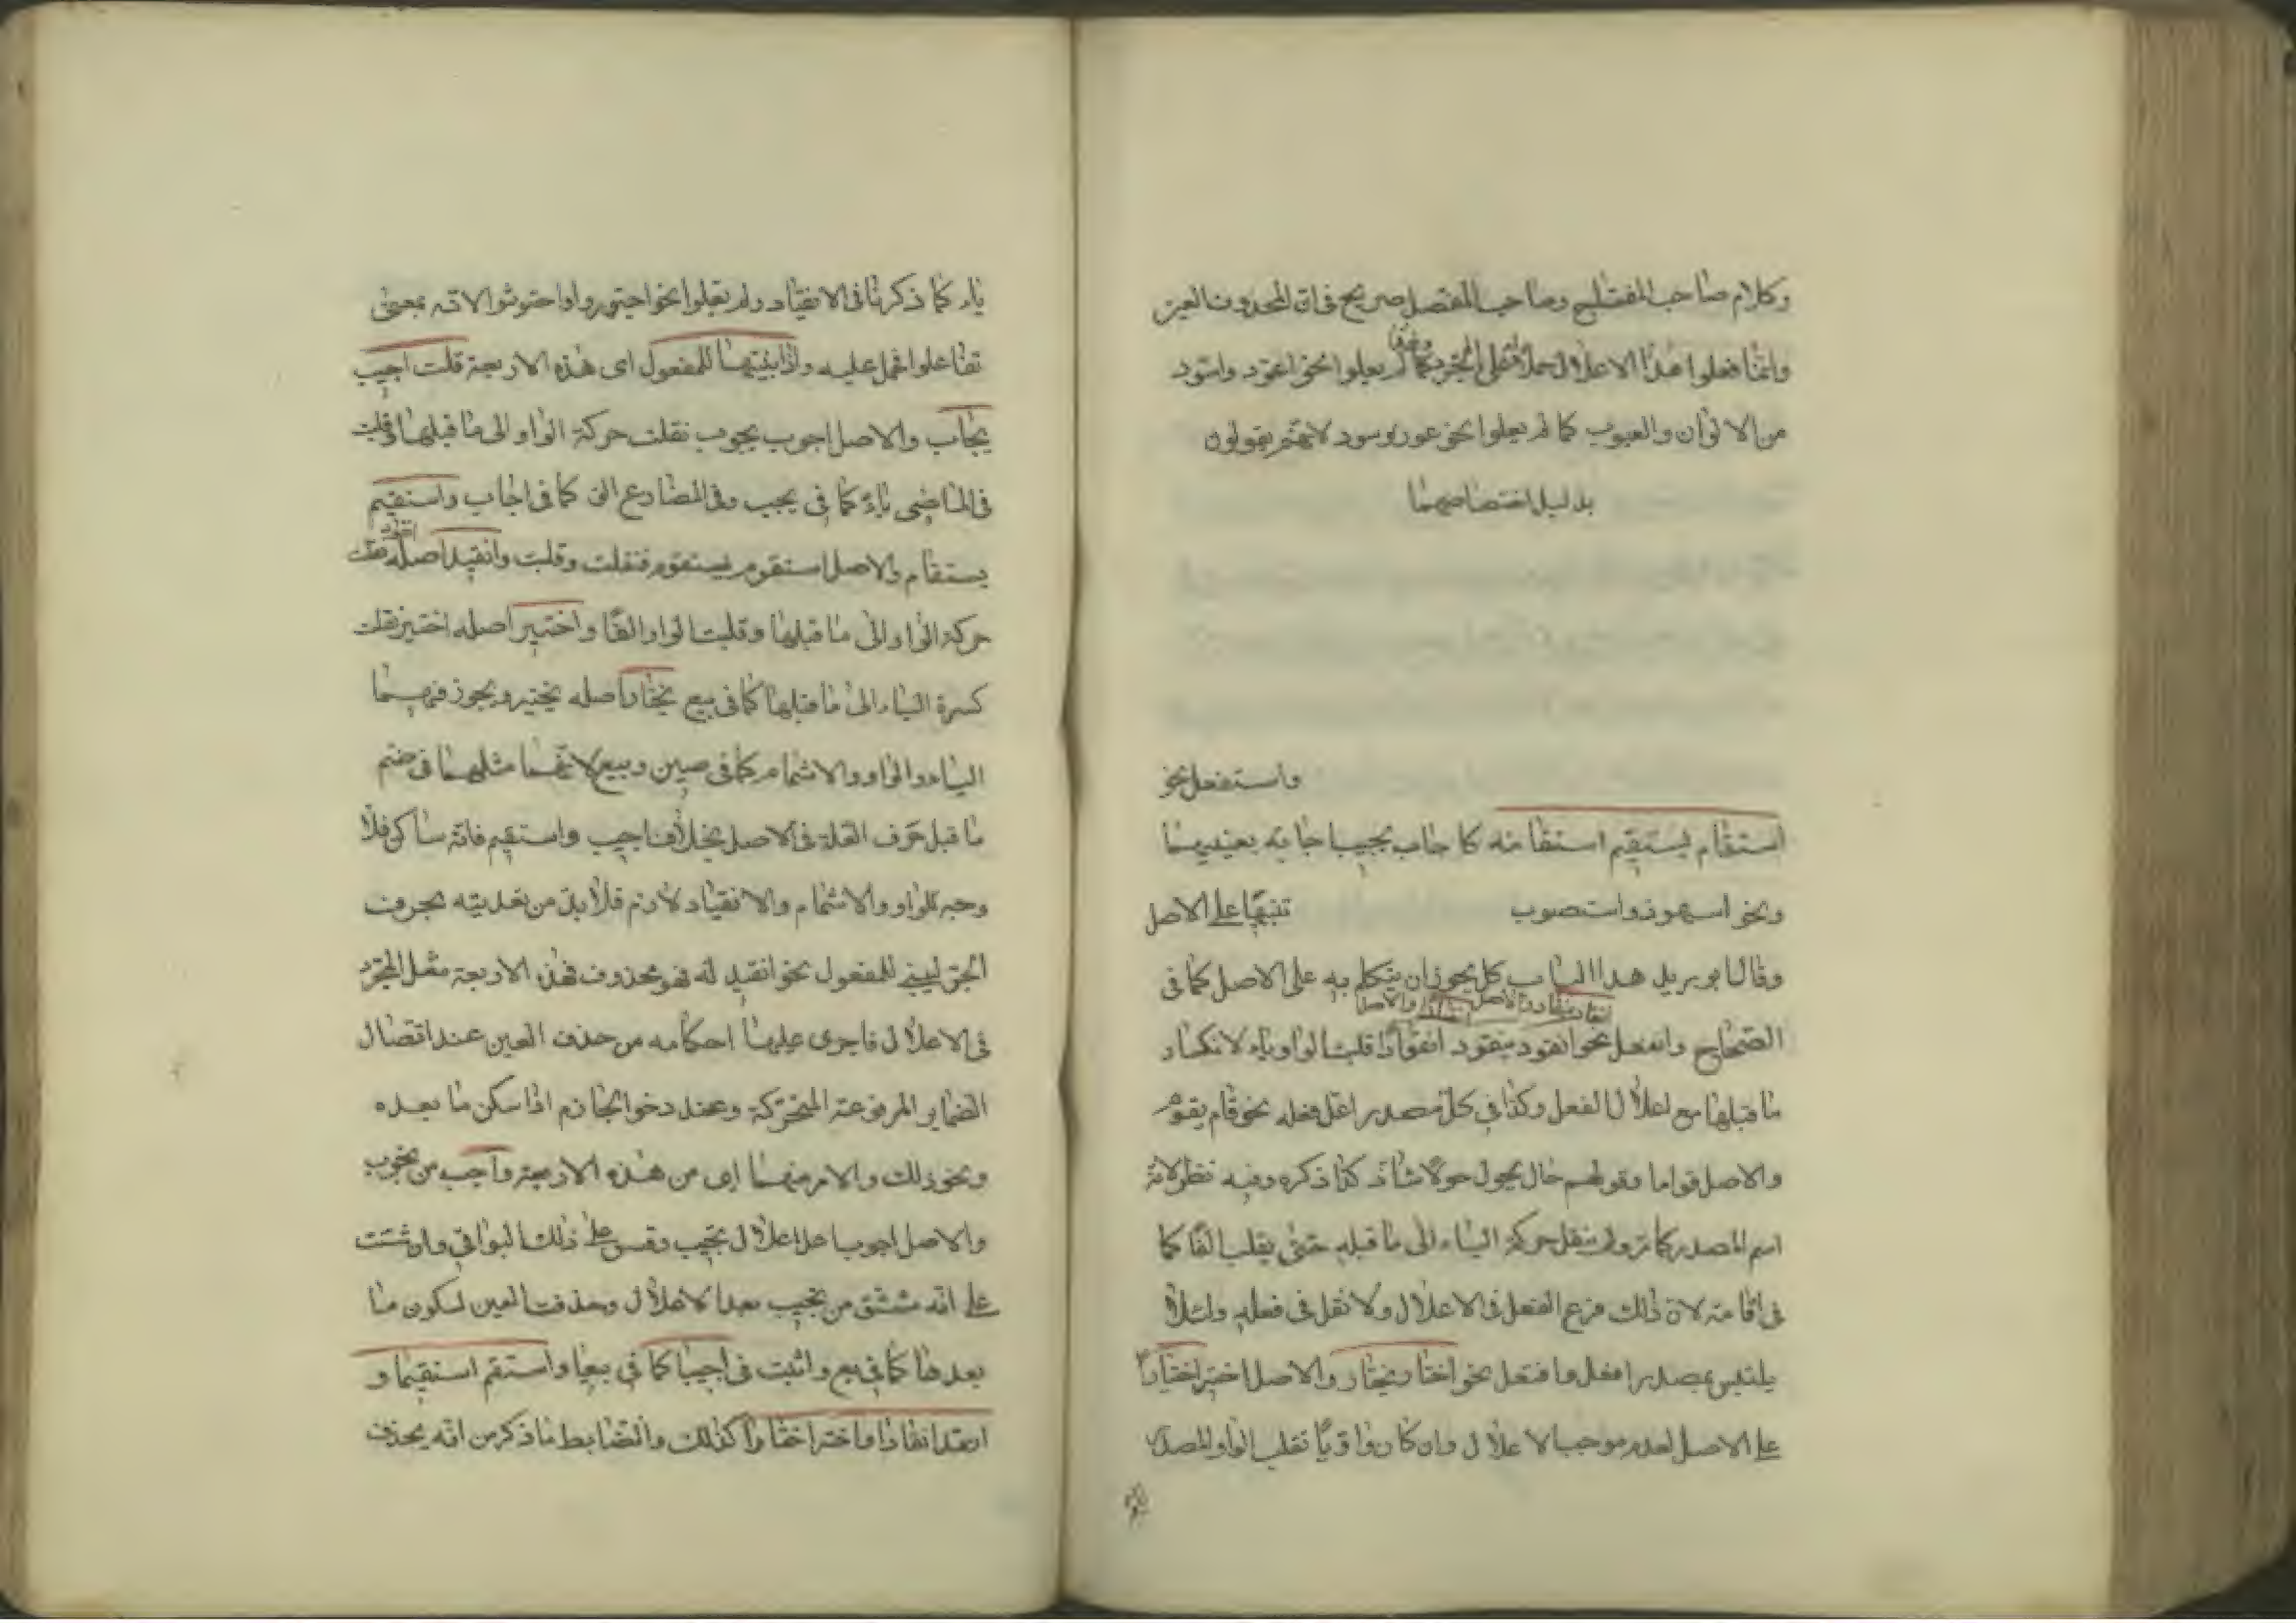 وكلام صاحب المفتاح وصاحب المفصل صريح فى ان المحذوف العين
وانما فعلوا هذا الاعلال حملا على المجرد كما لم يعلوا نحو اعور واسود
من الالوان والعيوب كما لم يعلوا نحو عور وسود لانهم يقولون
بدليل اختصاصهما
واستفعل نحو
استقام يستقيم استقامة كاجاب يجيب اجابة بعينهما
ونحو استحوذ واستصوب تنبيها على الاصل
وقال ابو زيد هذا الباب كله يجوز ان يتكلم به على الاصل كما فى
الصحاح وانفعل نحو انقود ينقود انقوادا قلبت الواو ياء لانكسار
ما قبلها مع اعلال الفعل وكذا فى كل مصدر اعل فعله نحو قام يقوم
والاصل قواما وقولهم حال يحول حولا شاذ كذا ذكره وفيه نظر لانه
اسم المصدر كما مر ولم ينقل حركة الياء الى ما قبله حتى يقلب الفا كما
فى اقامة لان ذلك فرع الفعل فى الاعلال ولا نقل فى فعله ولئلا
يلتبس بمصدر افعل وافتعل نحو اختار يختار والاصل اختير اختيارا
على الاصل لعدم موجب الاعلال وان كان واويا تقلب الواو المصدر
ياء كما ذكرنا فى الانقياد ولم يعلوا نحو اجتوروا واحتوشوا لانه بمعنى
تفاعلوا فحمل عليه واذا بنيتها للمفعول اى هذه الاربعة قلت اجيب
يجاب والاصل اجوب يجوب نقلت حركة الواو الى ما قبلها وقلبت
فى الماضى ياء كما فى يجيب وفى المضارع الفا كما فى اجاب واستقيم
يستقام والاصل استقوم يستقوم فنقلت وقلبت وانقيد اصله انقود نقلت
حركة الواو الى ما قبلها وقلبت الواو الفا واختير اصله اختير نقلت
كسرة الياء الى ما قبلها كما فى بيع يختار اصله يختير ويجوز فيهما
الياء والواو والاشمام كما فى صين وبيع لانهما مثلهما فى ضم
ما قبل حرف العلة فى الاصل بخلاف اجيب واستقيم فانه ساكن فلا
وجه للواو والاشمام والانقياد لازم فلا بد من تعديته بحرف
الجر ليبنى للمفعول نحو انقيد له فهو محذوف فهذه الاربعة مثل المجرد
فى الاعلال فاجرى عليها احكامه من حذف العين عند اتصال
الضماير المرفوعة المتحركة وعند دخول الجازم اذا سكن ما بعده
ونحو ذلك والامر منها اى من هذه الاربعة واجب من تجوب
والاصل اجوب اعل اعلال تجيب وقس على ذلك البواقى وان شئت
على انه مشتق من تجيب بعد الاعلال وحذفت العين لسكون ما
بعدها كما فى بع واثبت فى اجيبا كما فى بيعا واستقم استقيما و
انقد انقادا واختر اختارا كذلك والضابط ما ذكر من انه يحذف